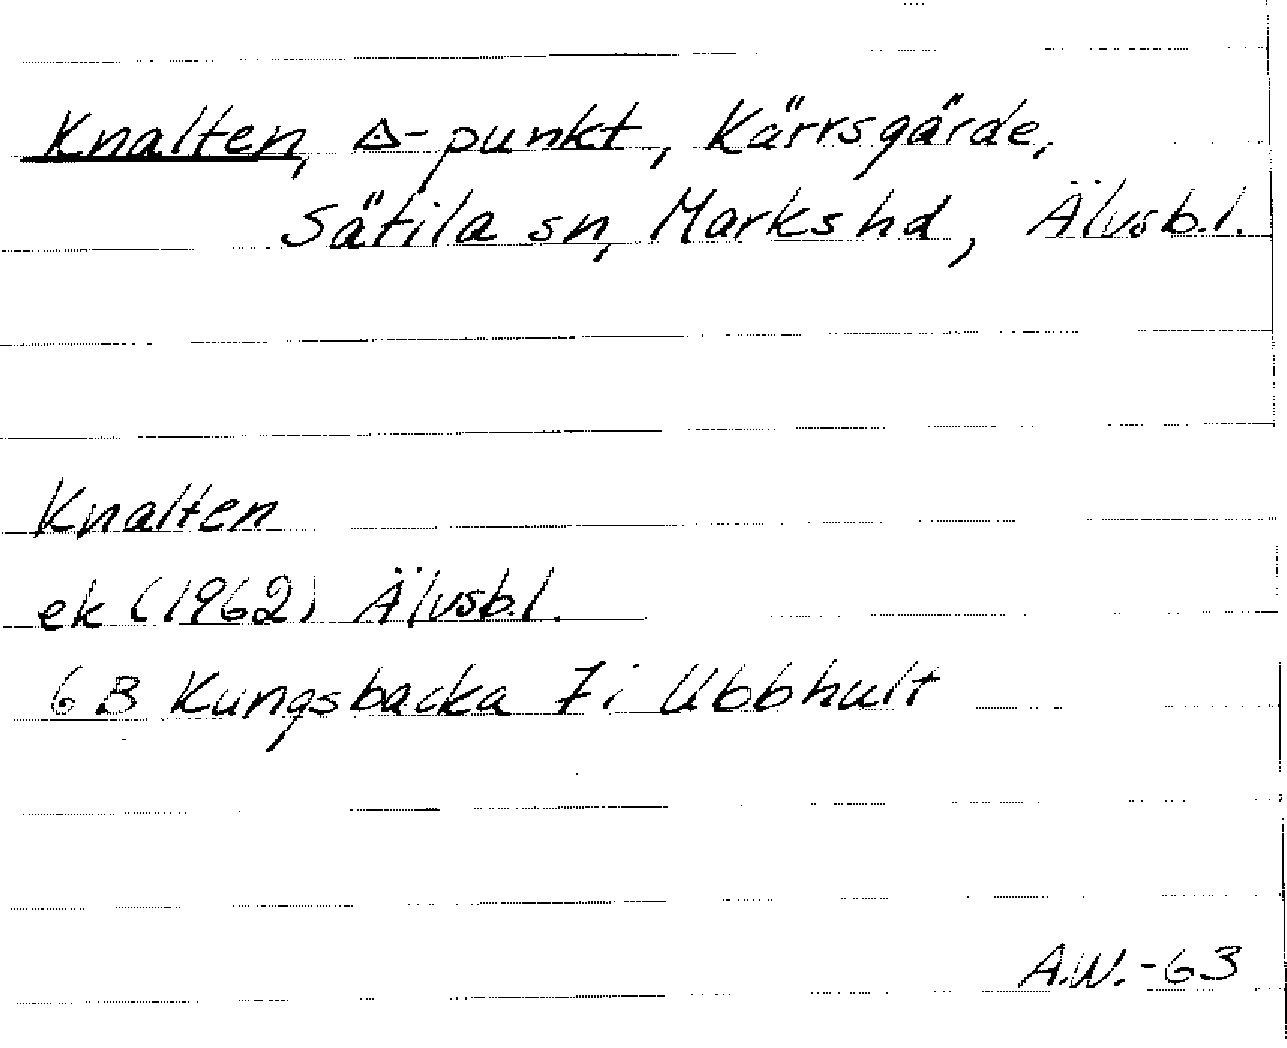 Knalten, ◬-punkt, Kärrsgärde,
Sätila sn, Marks hd, Älvsb.l.
Knalten
ek (1962) Älvsb.l.
6B Kungsbacka 7i Ubbhult
A.W.-63